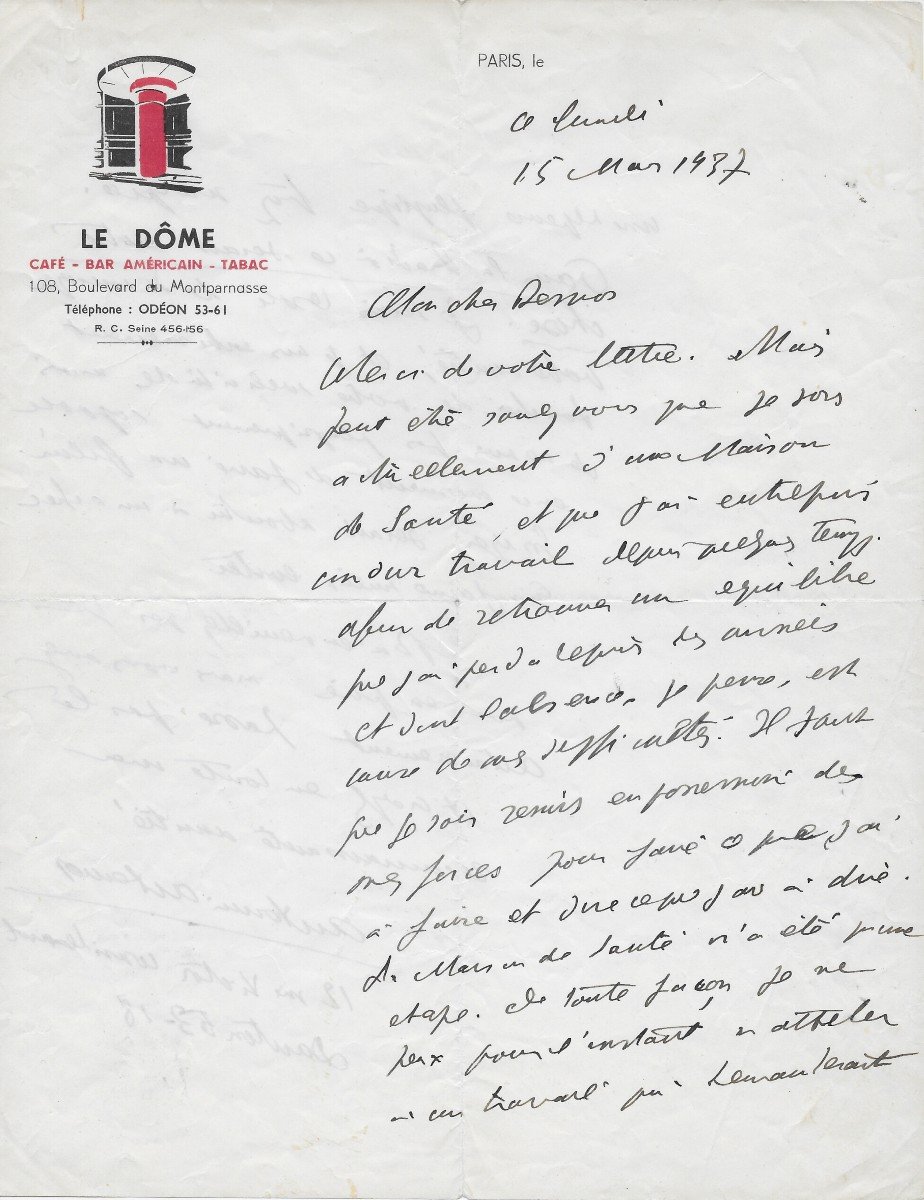 PARIS, le
ce lundi
15 Mars 1937
LE DÔME
CAFÉ - BAR AMÉRICAIN - TABAC
108, Boulevard du Montparnasse
Téléphone : ODÉON 53-61
R. C. Seine 456-156
Mon cher Desnos
Merci de votre lettre. Mais
peut être savez vous que je sors
actuellement d'une Maison
de Santé, et que j'ai entrepris
un dur travail depuis quelques temps
afin de retrouver un équilibre
que j'ai perdu depuis des années
et dont l'absence, je pense, est
cause de mes difficultés. Il faut
que je sois remis en possession de
mes forces pour faire ce que j'ai
à faire et dire ce que j'ai à dire.
La Maison de Santé n'a été qu'une
étape. De toute façon je ne
peux pour l'instant m'atteler
à un travail qui demanderait